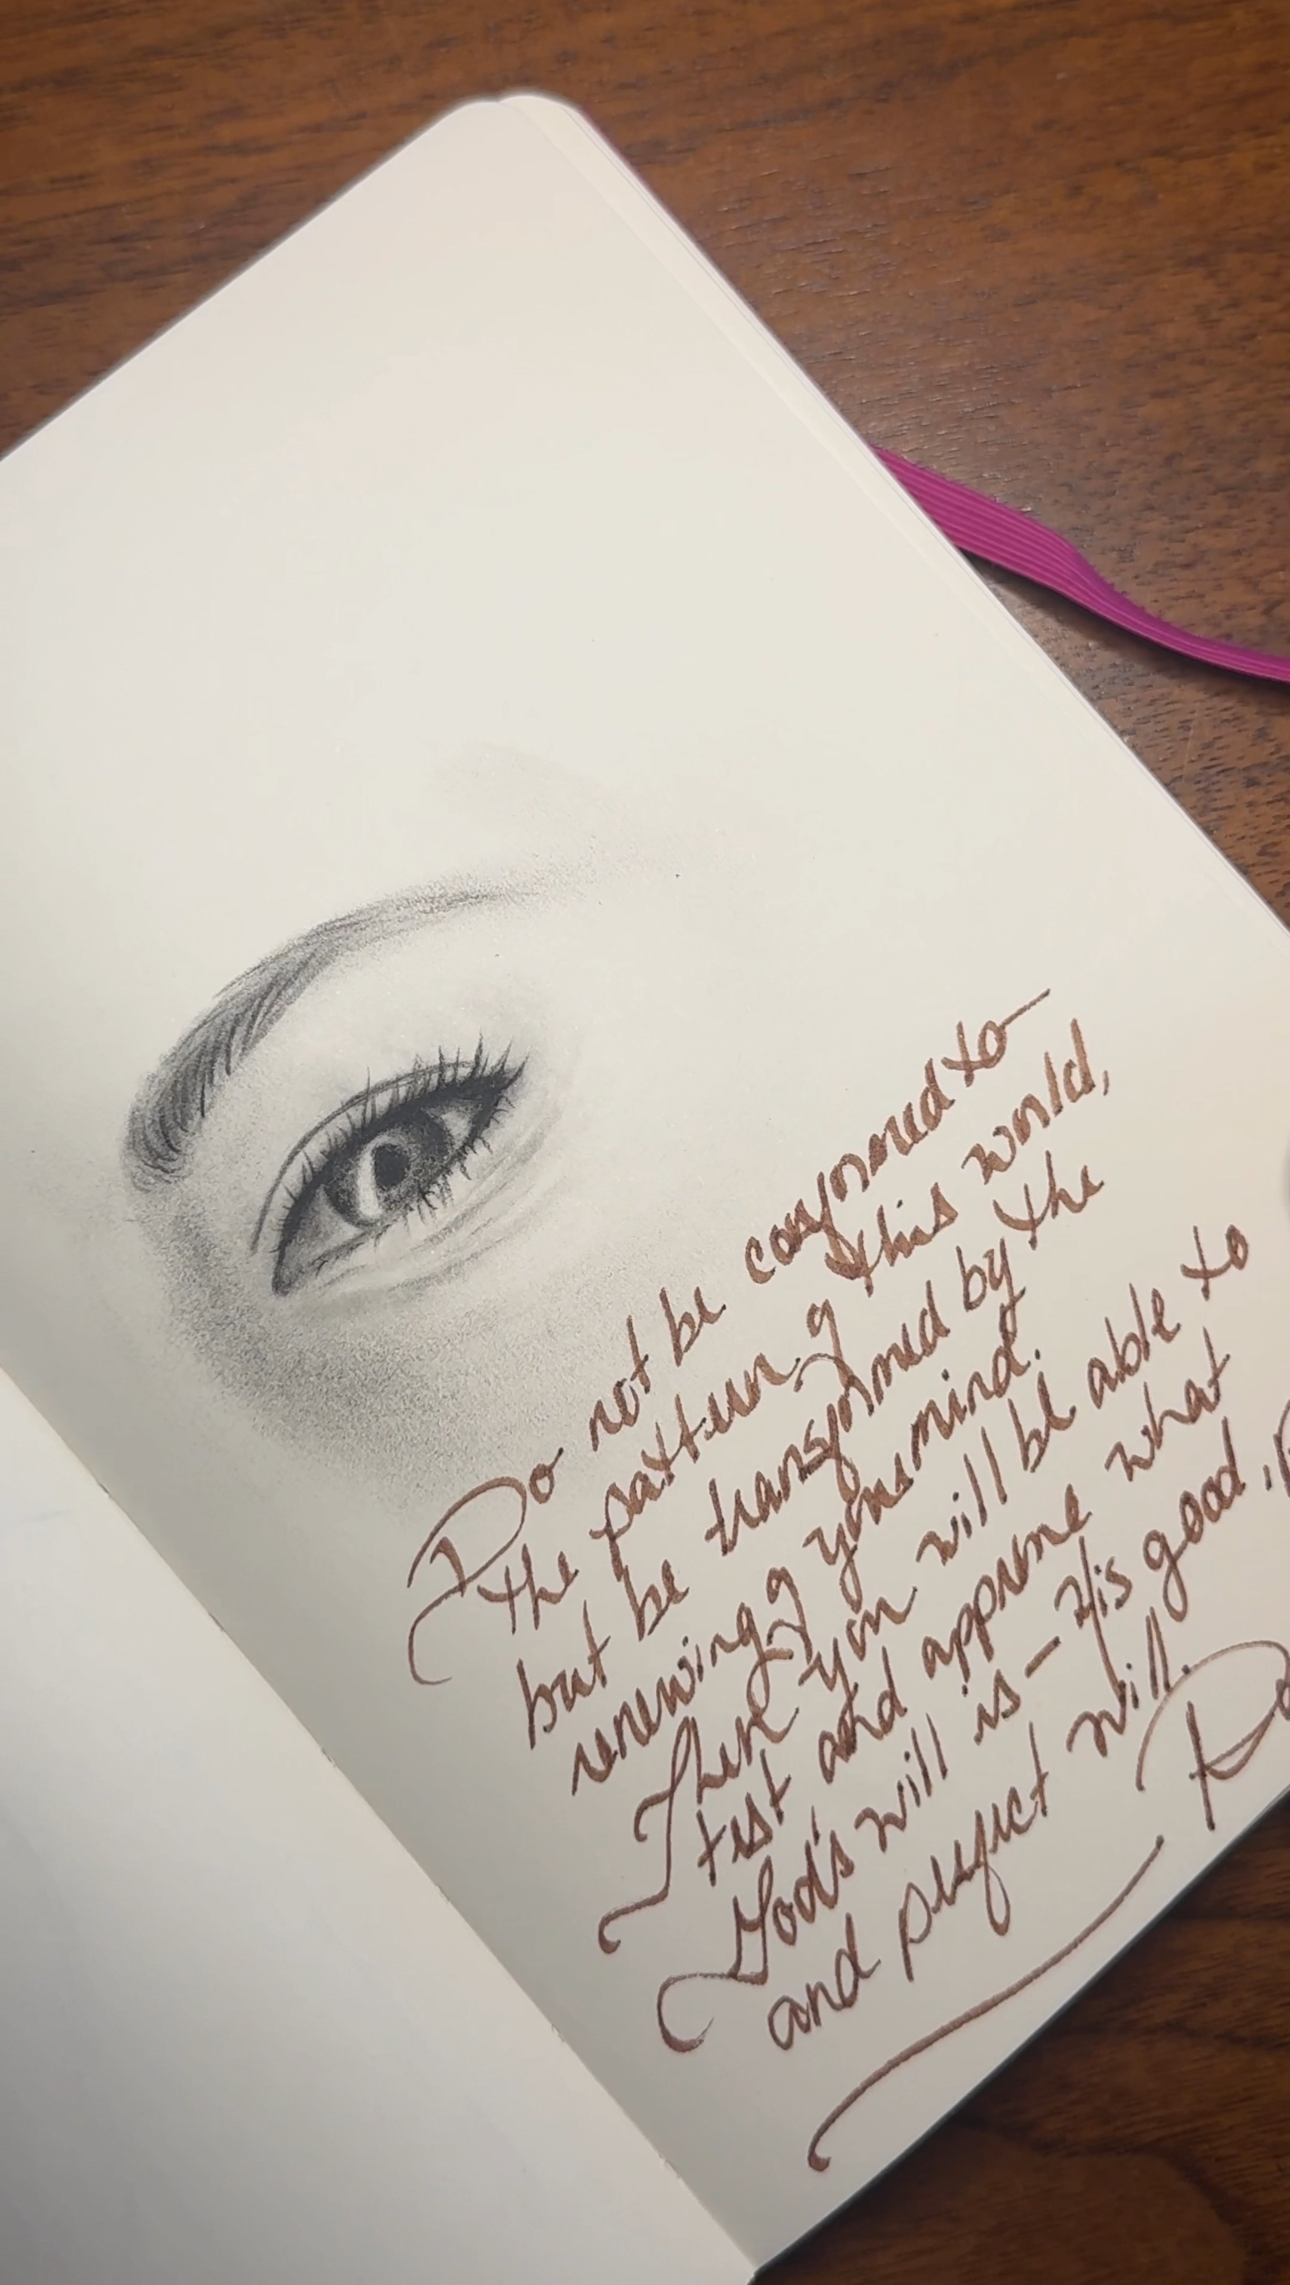 Do not be conformed to
the pattern of this world,
but be transformed by the
renewing of your mind.
Then you will be able to
test and approve what
God's will is – His good,
and perfect will.